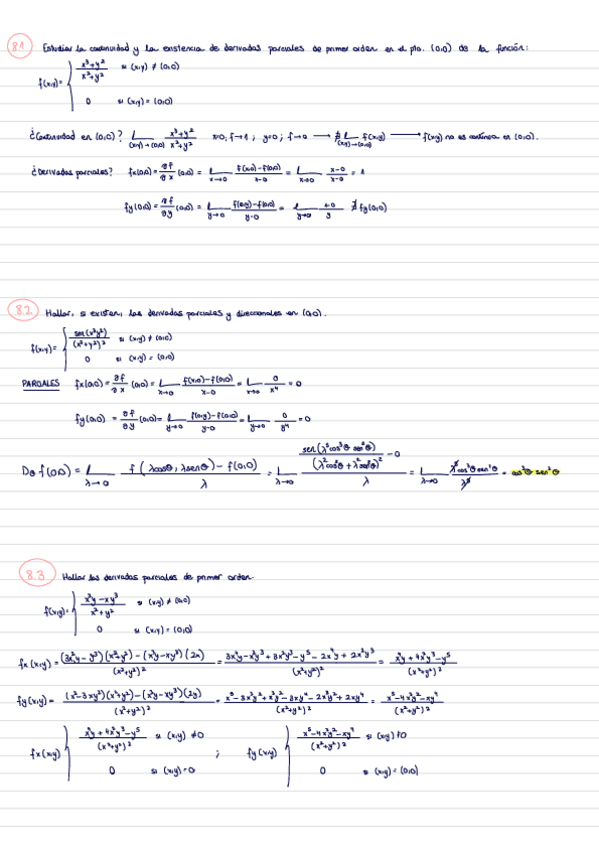 8.1 Estudiar la continuidad y la existencia de derivadas parciales de primer orden en el pto. (0,0) de la función:
f(x,y) = { x³+y² / x²+y² si (x,y) ≠ (0,0)
0 si (x,y) = (0,0)
¿Continuidad en (0,0)? L (x,y)→(0,0) x³+y² / x²+y² x=0, f→1 ; y=0; f→0 → ∄ L (x,y)→(0,0) f(x,y) → f(x,y) no es continua en (0,0).
¿Derivadas parciales? fx(0,0) = ∂f/∂x (0,0) = L x→0 f(x,0)-f(0,0) / x-0 = L x→0 x-0 / x-0 = 1
fy(0,0) = ∂f/∂y (0,0) = L y→0 f(0,y)-f(0,0) / y-0 = L y→0 1-0 / y ∄ fy(0,0)
8.2. Hallar, si existen, las derivadas parciales y direccionales en (0,0).
f(x,y) = { sen(x²y²) / (x²+y²)² si (x,y) ≠ (0,0)
0 si (x,y) = (0,0)
PARCIALES fx(0,0) = ∂f/∂x (0,0) = L x→0 f(x,0)-f(0,0) / x-0 = L x→0 0 / x⁴ = 0
fy(0,0) = ∂f/∂y (0,0) = L y→0 f(0,y)-f(0,0) / y-0 = L y→0 0 / y⁴ = 0
Dθ f(0,0) = L λ→0 f(λcosθ, λsenθ) - f(0,0) / λ = L λ→0 / λ = L λ→0
8.3 Hallar las derivadas parciales de primer orden.
f(x,y) = { x³y-xy³ / x²+y² si (x,y) ≠ (0,0)
0 si (x,y) = (0,0)
fx(x,y) = (3x²y-y³)(x²+y²)-(x³y-xy³)(2x) / (x²+y²)² = / (x²+y²)² = x⁴y+4x²y³-y⁵ / (x²+y²)²
fy(x,y) = (x³-3xy²)(x²+y²)-(x³y-xy³)(2y) / (x²+y²)² = / (x²+y²)² = x⁵-4x³y²-xy⁴ / (x²+y²)²
fx(x,y) { x⁴y+4x²y³-y⁵ / (x²+y²)² si (x,y) ≠ 0 ; fy(x,y) { x⁵-4x³y²-xy⁴ / (x²+y²)² si (x,y) ≠ 0
0 si (x,y) = 0 0 si (x,y) = (0,0)